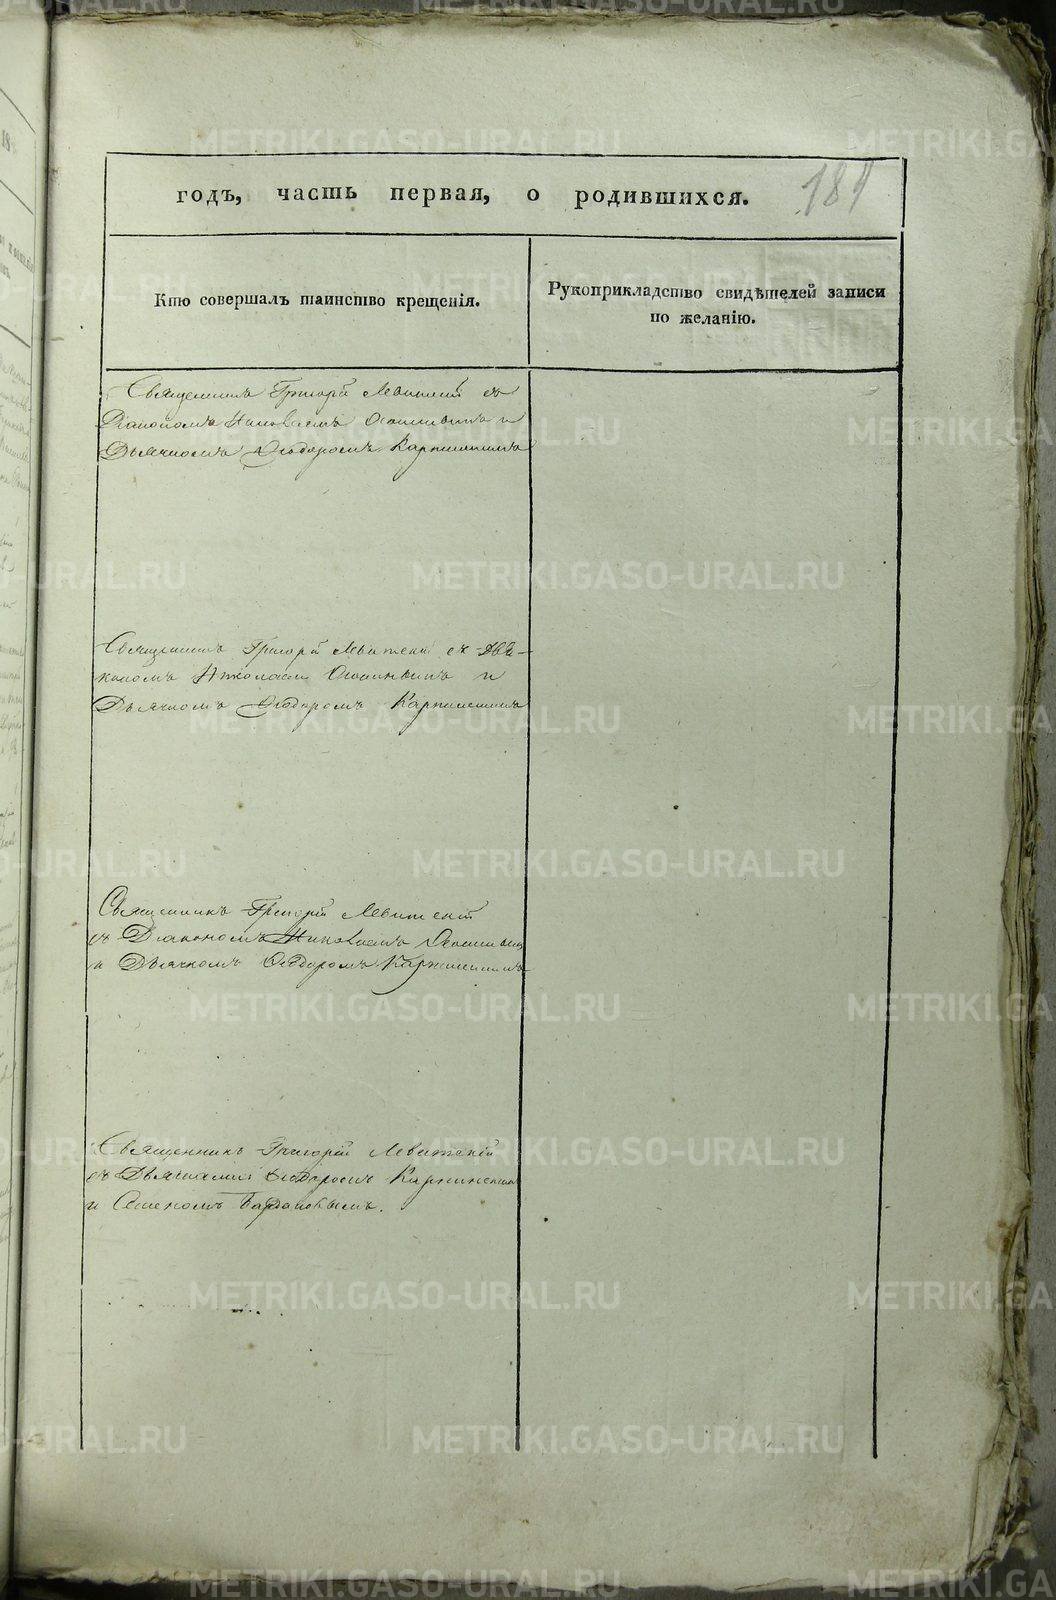 годъ, часть первая, о родившихся. 181
Кто совершалъ таинство крещенія.
Рукоприкладство свидѣтелей записи
по желанію.
Священникъ Григорій Левитскій съ
Діакономъ Николаемъ и
Дьячкомъ Ѳеодоромъ
Священникъ Григорій Левитскій съ Діа-
кономъ Николаемъ и
Дьячкомъ Ѳеодоромъ
Священникъ Григорій Левитскій
съ Діакономъ Николаемъ
и Дьячкомъ Ѳеодоромъ
Священникъ Григорій Левитскій
съ Дьячками Ѳеодоромъ
и Семеномъ
METRIKI.GASO-URAL.RU